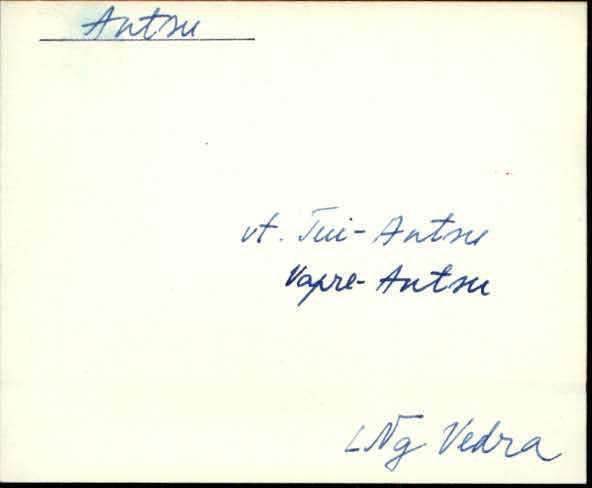 Antsu
vt. Tui-Antsu
Vapre-Antsu
LNg Vedra